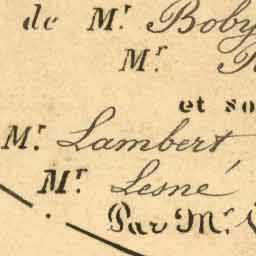 de Mr. Boby
Mr.
et so
Mr. Lambert
Mr. Lesné
Par Mr.